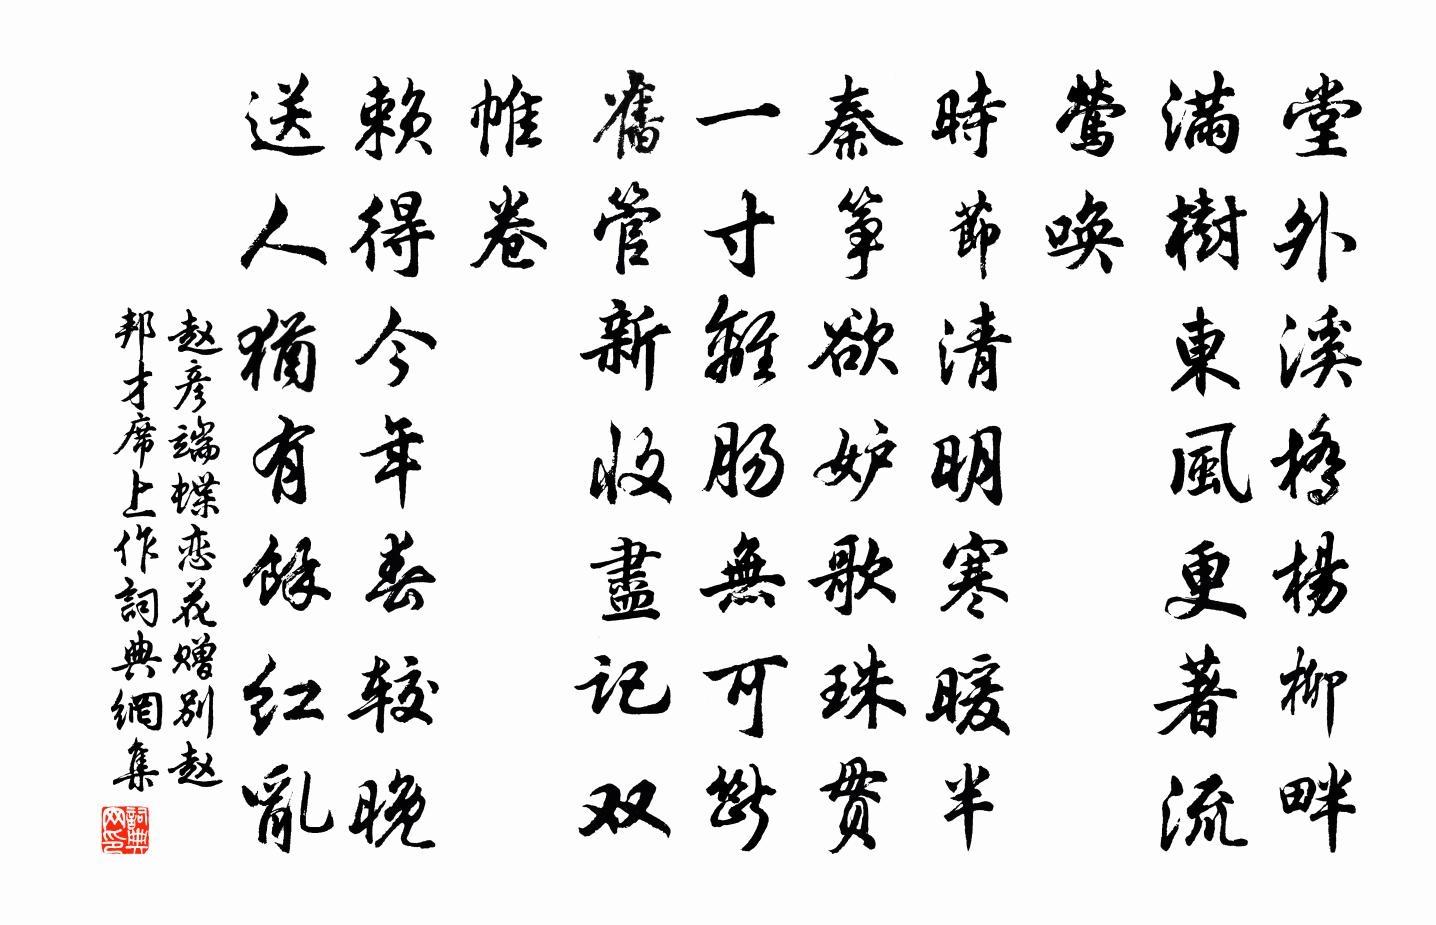 堂外溪橋楊柳畔
滿樹東風更著流
鶯喚
時節清明寒暖半
秦筝欲妒歌珠貫
一寸離肠無可斷
舊管新收盡記双
帷卷
赖得今年春较晚
送人猶有餘红亂
赵彦端蝶恋花赠别赵
邦才席上作詞典網集
詞典
网印